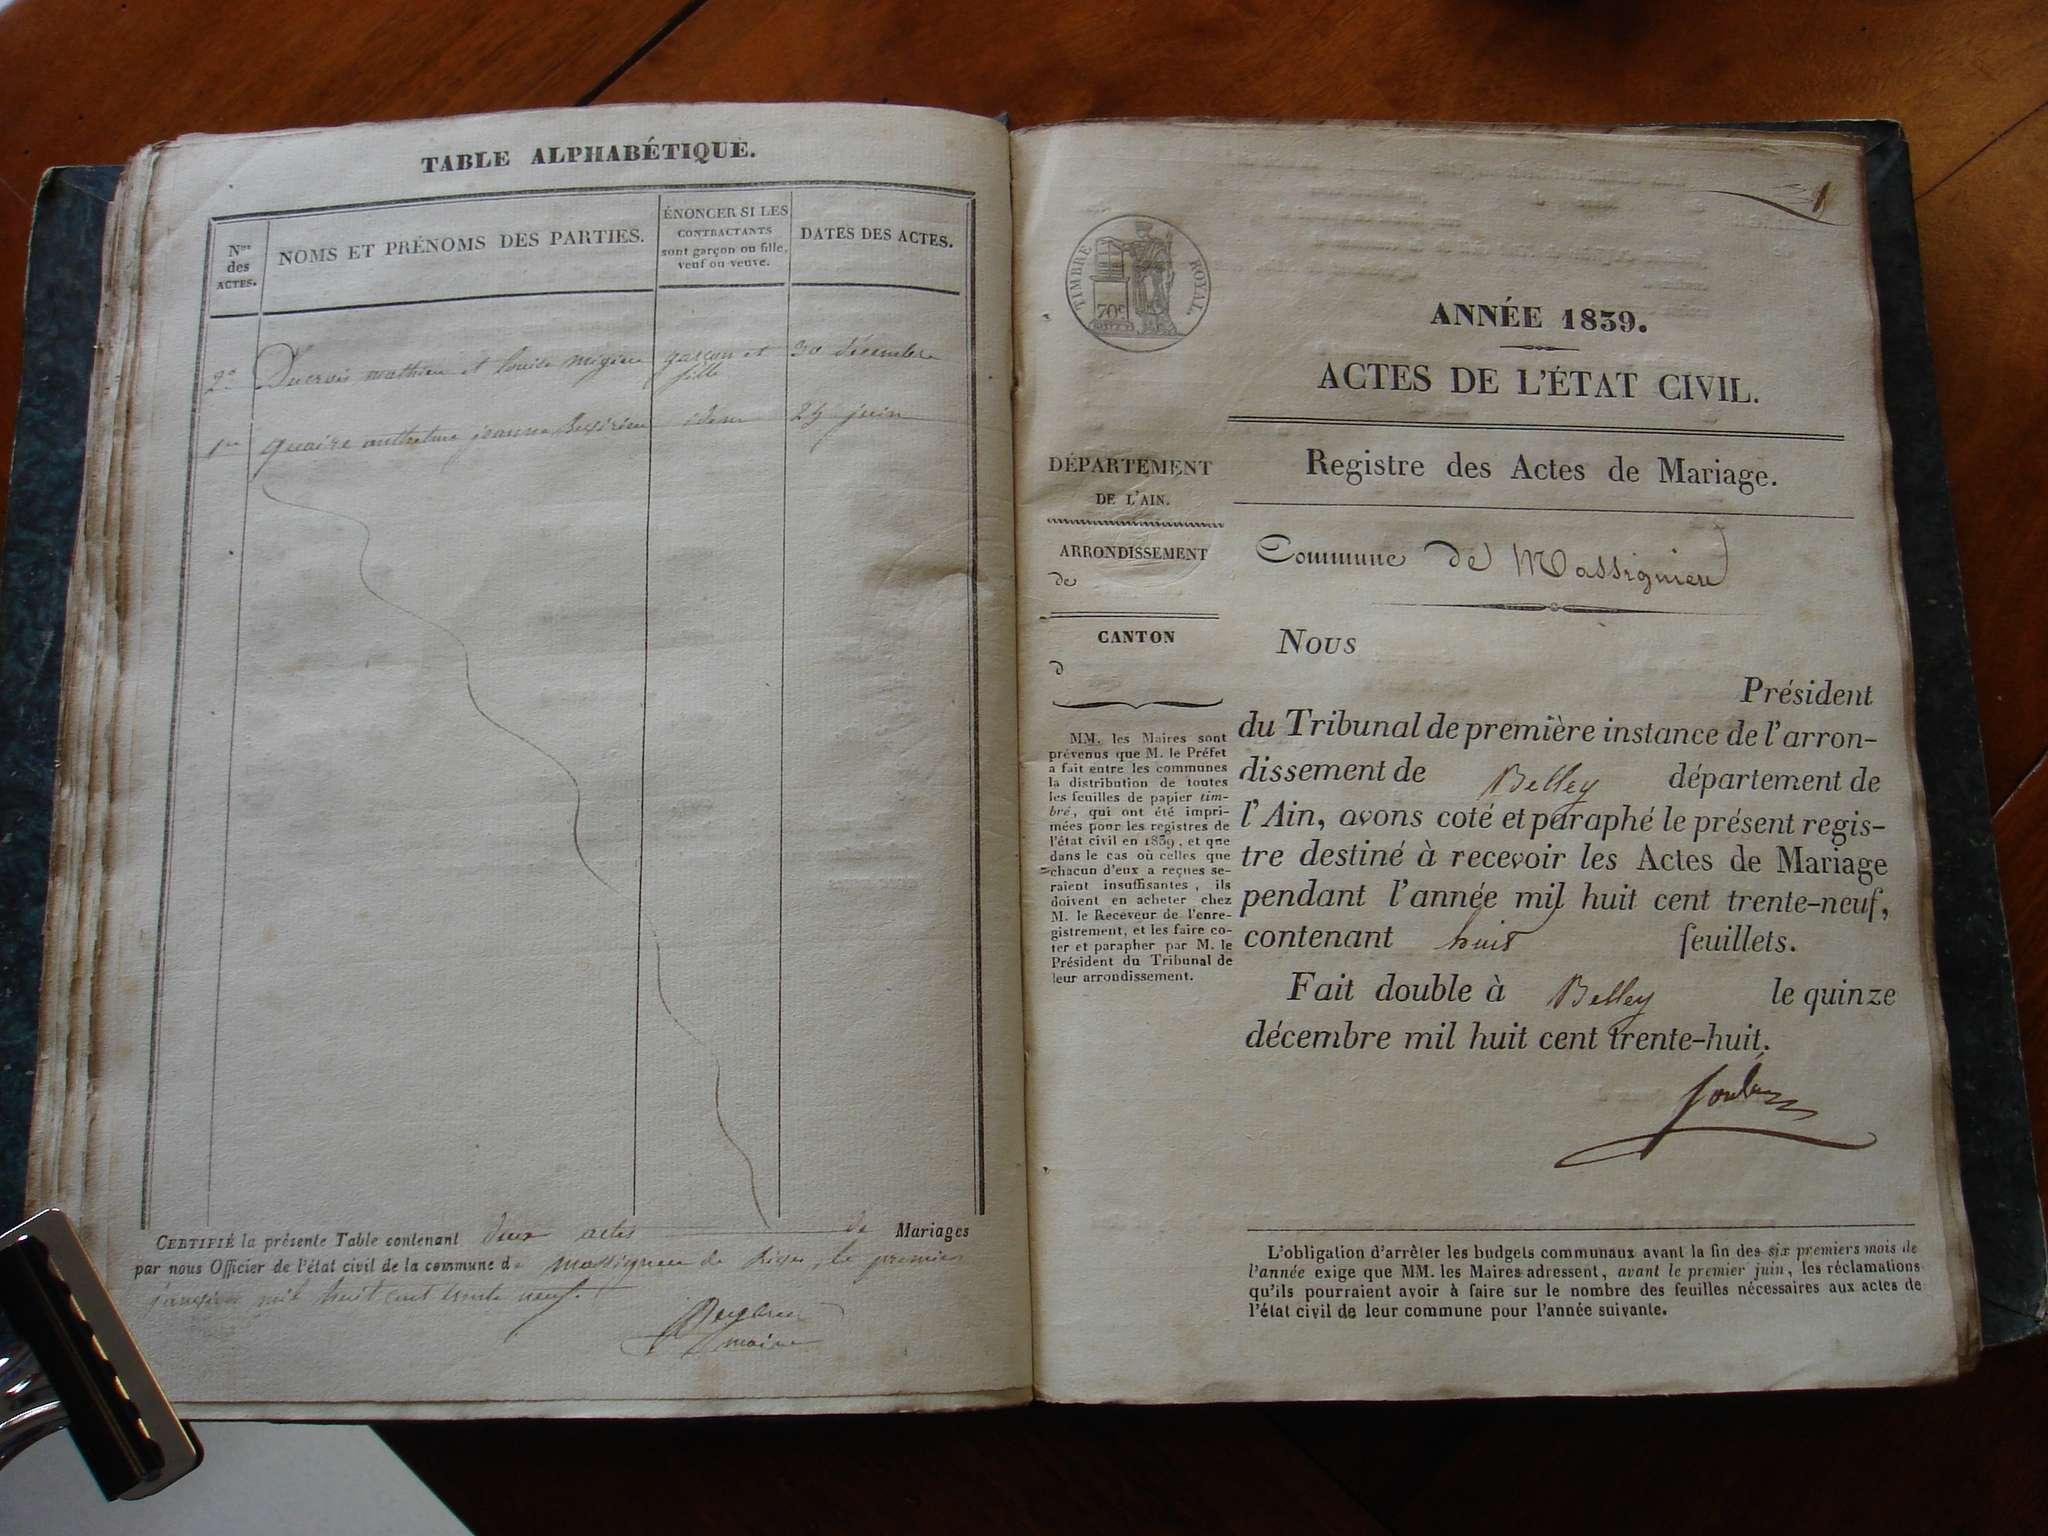 TABLE ALPHABÉTIQUE.
Nos des ACTES.
NOMS ET PRÉNOMS DES PARTIES.
ÉNONCER SI LES
CONTRACTANTS
sont garçon ou fille,
veuf ou veuve.
DATES DES ACTES.
2e mathieu et louise garçon et 30 décembre
fille
1er jeanne idem juin
CERTIFIÉ la présente Table contenant deux actes de Mariages
par nous Officier de l'état civil de la commune de massignieu de Rives, le premier
janvier mil huit cent trente neuf.
maire
1
TIMBRE ROYAL.
70c
ANNÉE 1839.
ACTES DE L'ÉTAT CIVIL.
Registre des Actes de Mariage.
DÉPARTEMENT
DE L'AIN.
ARRONDISSEMENT
de
CANTON
d
Commune de Massignieu
Nous
Président
du Tribunal de première instance de l'arron-
dissement de Belley département de
l'Ain, avons coté et paraphé le présent regis-
tre destiné à recevoir les Actes de Mariage
pendant l'année mil huit cent trente-neuf,
contenant huit feuillets.
Fait double à Belley le quinze
décembre mil huit cent trente-huit.
MM. les Maires sont
prévenus que M. le Préfet
a fait entre les communes
la distribution de toutes
les feuilles de papier tim-
bré, qui ont été impri-
mées pour les registres de
l'état civil en 1839, et que
dans le cas où celles que
chacun d'eux a reçues se-
raient insuffisantes, ils
doivent en acheter chez
M. le Receveur de l'enre-
gistrement, et les faire co-
ter et parapher par M. le
Président du Tribunal de
leur arrondissement.
L'obligation d'arrêter les budgets communaux avant la fin des six premiers mois de
l'année exige que MM. les Maires adressent, avant le premier juin, les réclamations
qu'ils pourraient avoir à faire sur le nombre des feuilles nécessaires aux actes de
l'état civil de leur commune pour l'année suivante.